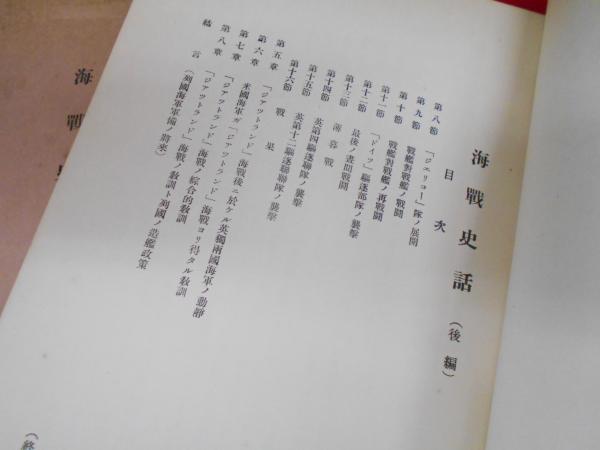 海戰史話（後編）
目次
第八節 「ジエリコー」隊ノ展開
第九節 戰艦對戰艦ノ戰鬪
第十節 戰艦對戰艦ノ再戰鬪
第十一節 「ドイツ」驅逐部隊ノ襲擊
第十二節 最後ノ晝間戰鬪
第十三節 薄暮戰
第十四節 英第四驅逐聯隊ノ襲擊
第十五節 英第十二驅逐聯隊ノ襲擊
第十六節 戰果
第五章 「ジアツトランド」海戰後ニ於ケル英獨兩國海軍ノ動靜
第六章 米國海軍ガ「ジアツトランド」海戰ヨリ得タル敎訓
第七章 「ジアツトランド」海戰ノ綜合的敎訓
第八章 「ジアツトランド」海戰ノ敎訓ト列國ノ造艦政策
結言（列國海軍軍備ノ將來）
（終
海戰史